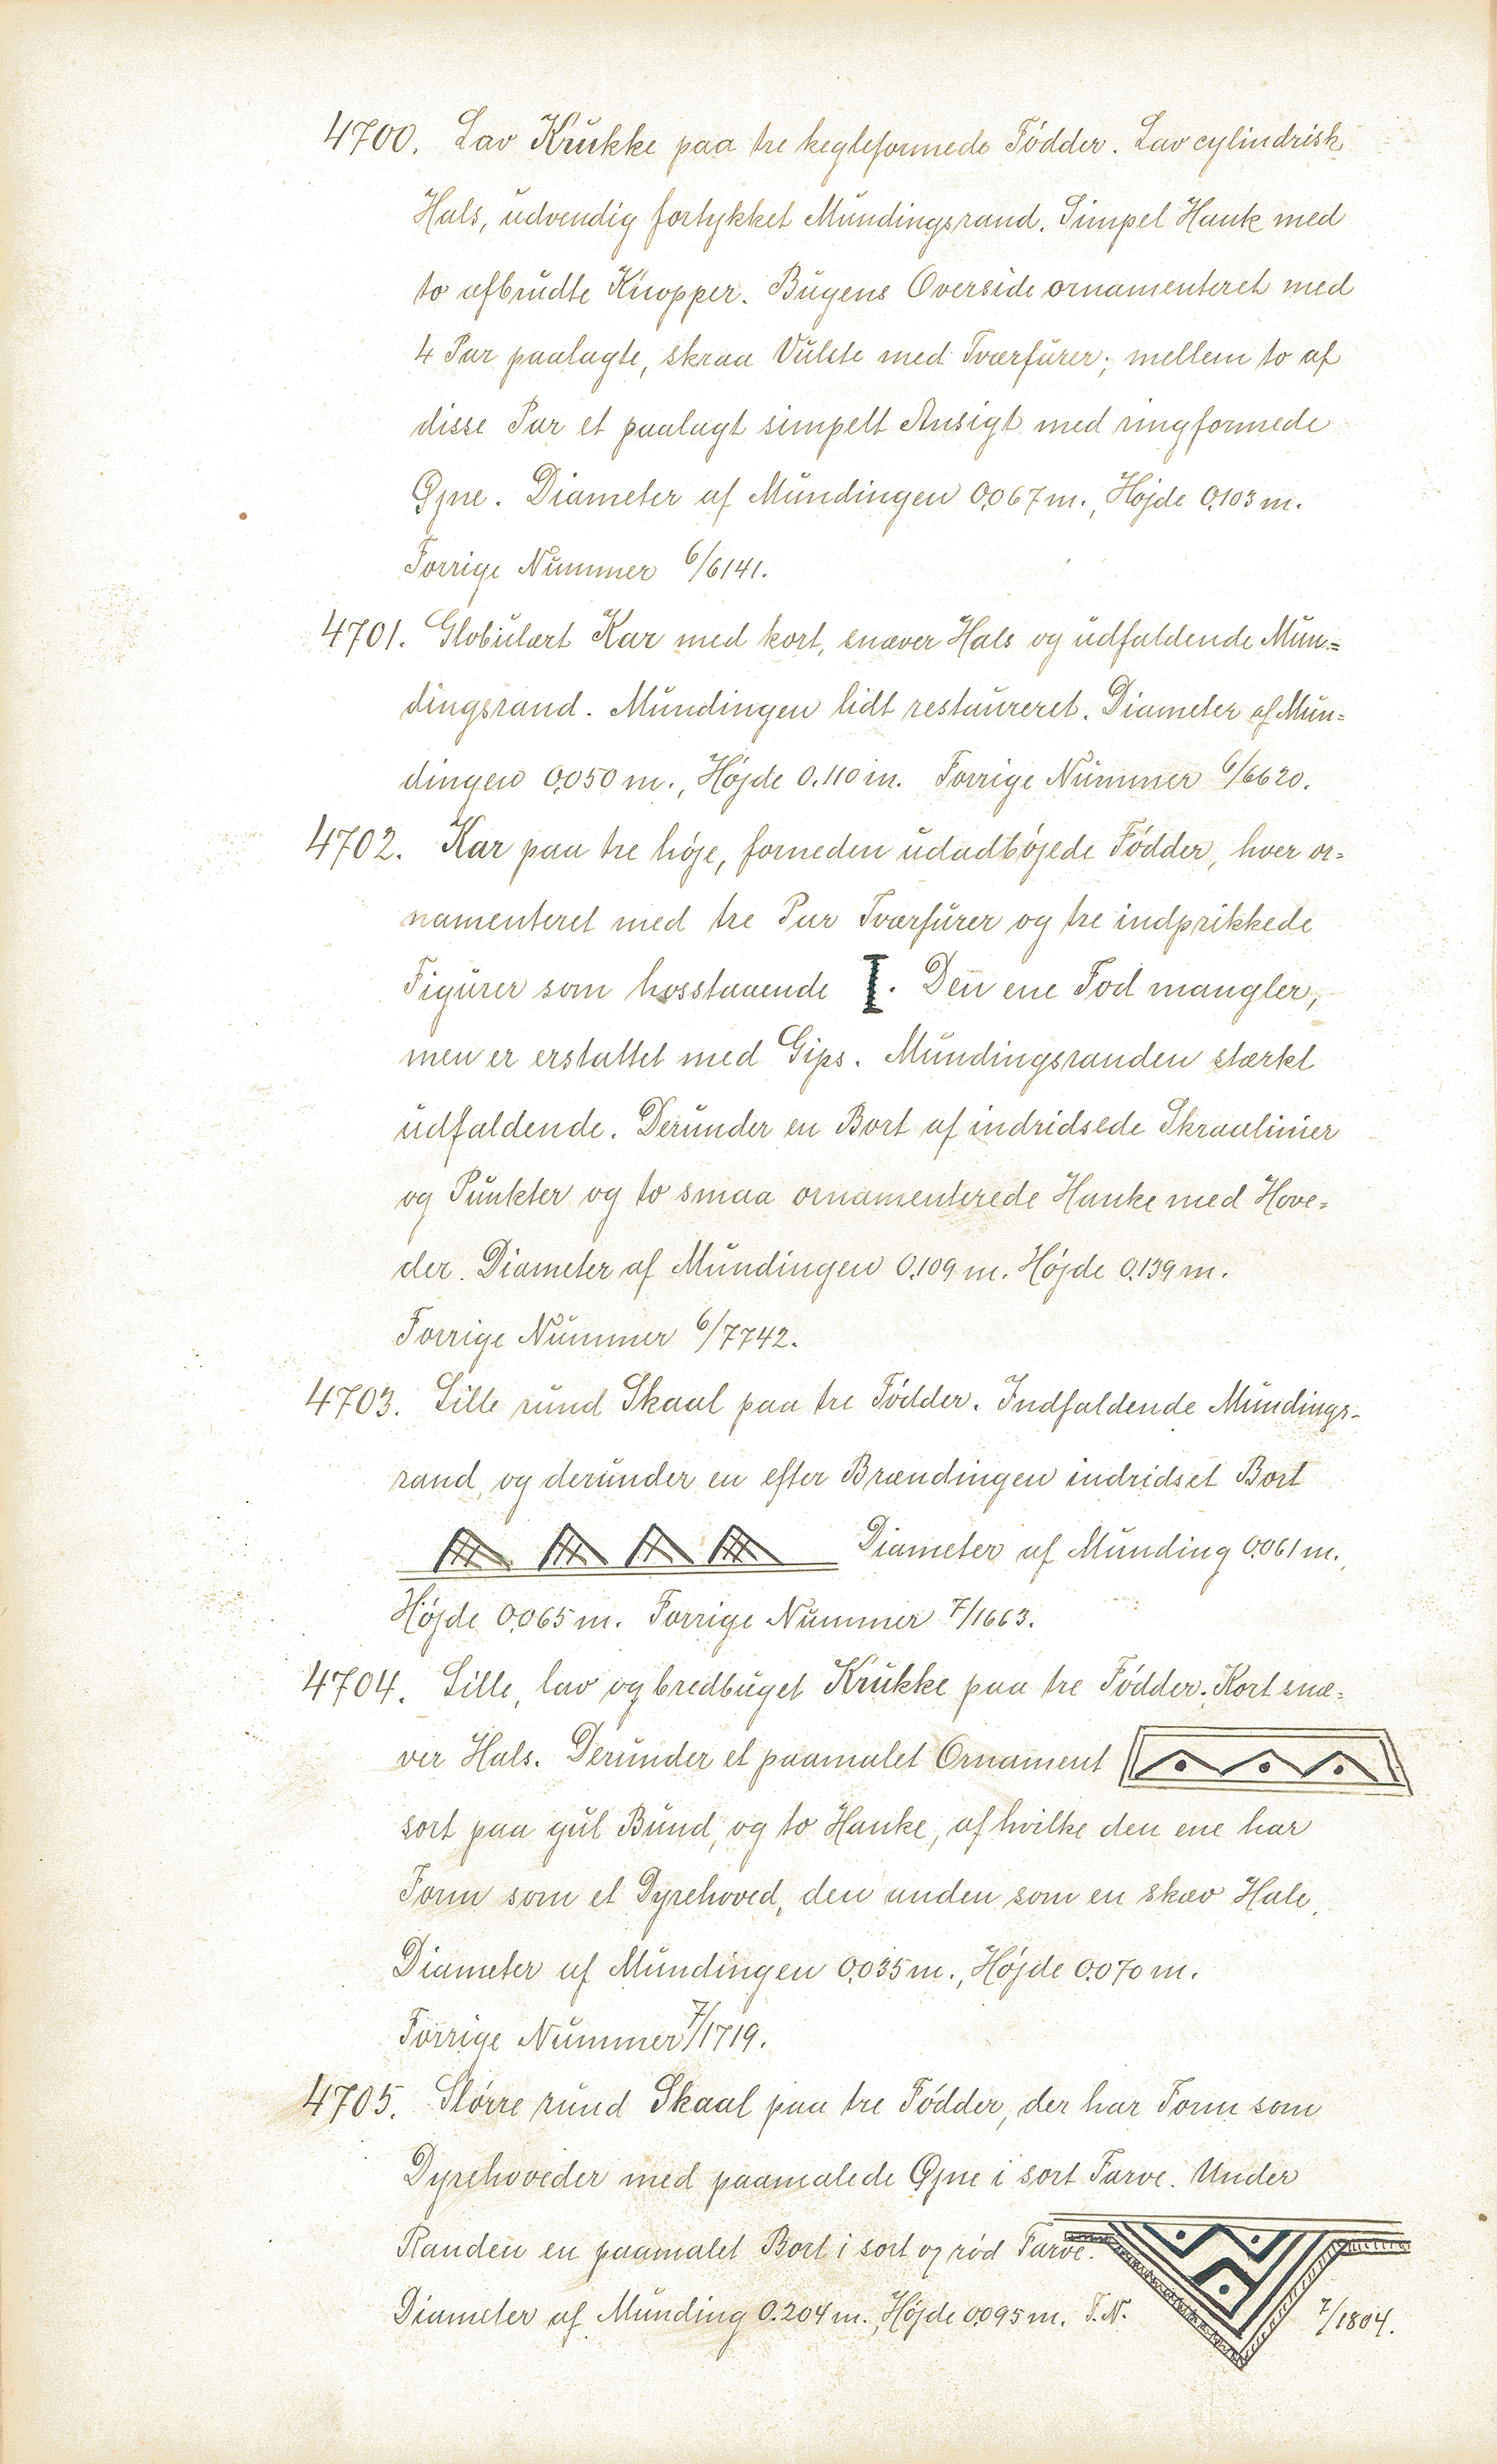 4700. Lav Krukke paa tre kegleformede Fødder. Lav cylindrisk
Hals, udvendig fortykket Mundingsrand. Simpel Hank med
to afbrudte Knopper. Bugens Overside ornamenteret med
4 Par paalagte, skraa Vulste med Tværfurer; mellem to af
disse Par et paalagt simpelt Ansigt med ringformede
Øjne. Diameter af Mundingen 0,067 m., Højde 0,103 m.
Forrige Nummer 6/6141.
4701. Globulært Kar med kort, snæver Hals og udfaldende Mun=
dingsrand. Mundingen lidt restaureret. Diameter af Mun=
dingen 0,050 m., Højde 0.110 m. Forrige Nummer 6/6620.
4702. Kar paa tre høje, forneden udadbøjede Fødder, hver or=
namenteret med tre Par Tværfurer og tre indprikkede
Figurer som hosstaaende . Den ene Fod mangler,
men er erstattet med Gips. Mundingsranden stærkt
udfaldende. Derunder en Bort af indridsede Skraalinier
og Punkter og to smaa ornamenterede Hanke med Hove=
der. Diameter af Mundingen 0,109 m. Højde 0,139 m.
Forrige Nummer 6/7742.
4703. Lille rund Skaal paa tre Fødder. Indfaldende Mundings-
rand, og derunder en efter Brændingen indridset Bort
Diameter af Munding 0,061 m.,
Højde 0,065 m. Forrige Nummer 7/1663.
4704. Lille, lav og bredbuget Krukke paa tre Fødder. Kort snæ=
ver Hals. Derunder et paamalet Ornament
sort paa gul Bund, og to Hanke, af hvilke den ene har
Form som et Dyrehoved, den anden som en skæv Hale.
Diameter af Mundingen 0,035 m., Højde 0,070 m.
Forrige Nummer 7/1719.
4705. Større rund Skaal paa tre Fødder, der har Form som
Dyrehoveder med paamalede Øjne i sort Farve. Under
Randen en paamalet Bort i sort og rød Farve.
Diameter af Munding 0.204 m., Højde 0,095 m. F.N. 7/1804.